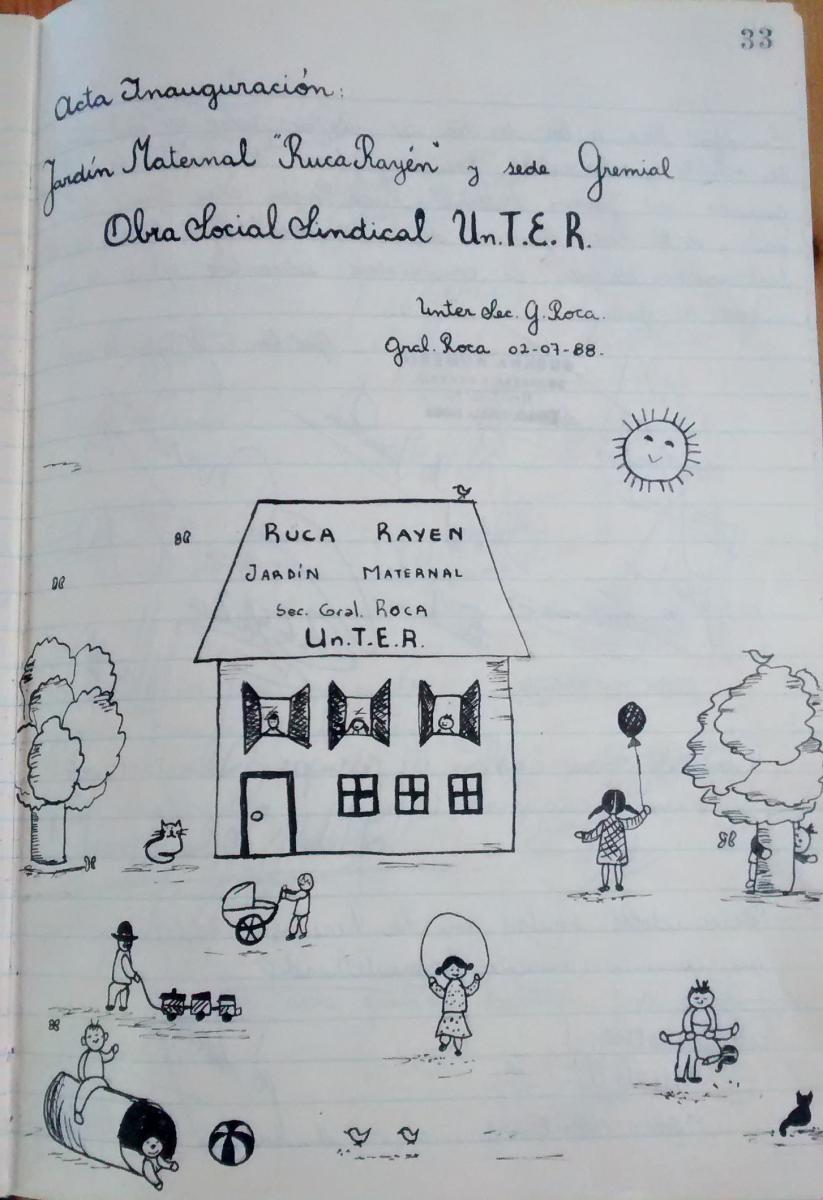 33
Acta Inauguración:
Jardín Maternal "Ruca Rayén" y sede Gremial
Obra Social Sindical Un.T.E.R.
Unter Sec. G. Roca.
Gral. Roca 02-07-88.
RUCA RAYEN
JARDÍN MATERNAL
Sec. Gral. ROCA
Un.T.E.R.